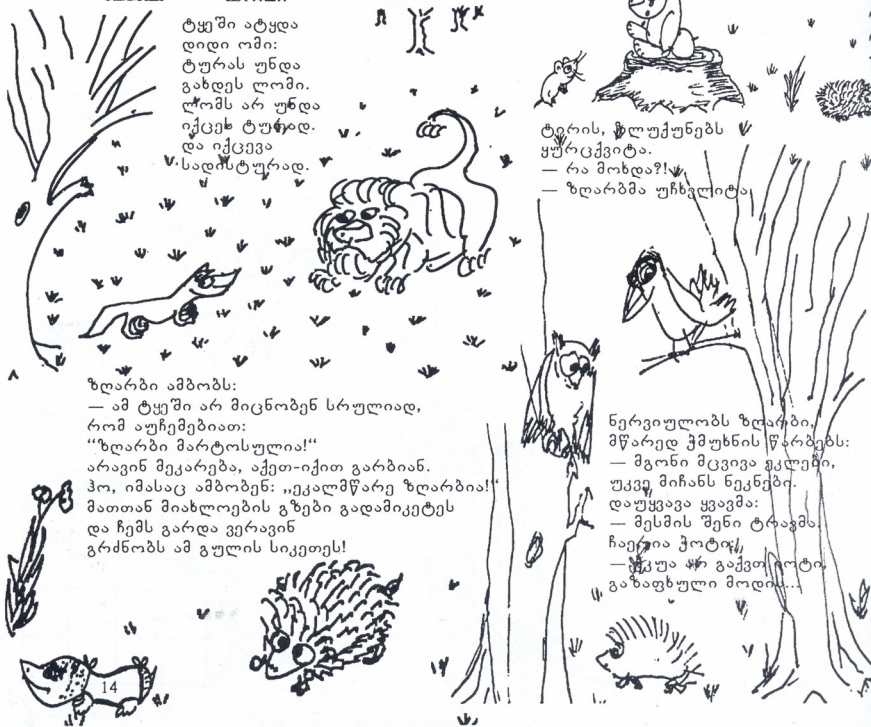 ტყეში ატყდა
დიდი ომი:
ტურას უნდა
გახდეს ლომი.
ლომს არ უნდა
იქცეს ტურად.
და იქცევა
სადისტურად.
ტირის, ზლუქუნებს
ყურცქვიტა.
— რა მოხდა?!
— ზღარბმა უჩხვლიტა
ზღარბი ამბობს:
— ამ ტყეში არ მიცნობენ სრულიად,
რომ აუჩემებიათ:
“ზღარბი მარტოსულია!“
არავინ მეკარება, აქეთ-იქით გარბიან.
ჰო, იმასაც ამბობენ: „ეკალმწარე ზღარბია!“
მათთან მიახლოების გზები გადამიკეტეს
და ჩემს გარდა ვერავინ
გრძნობს ამ გულის სიკეთეს!
ნერვიულობს ზღარბი,
მწარედ ჭმუხნის წარბებს:
— მგონი მცვივა ეკლები,
უკვე მიჩანს ნეკნები.
დაუყვავა ყვავმა:
— მესმის შენი ტრავმა.
ჩაერია ჭოტი:
— ჭკუა არ გაქვთ
გაზაფხული მოდის...
14